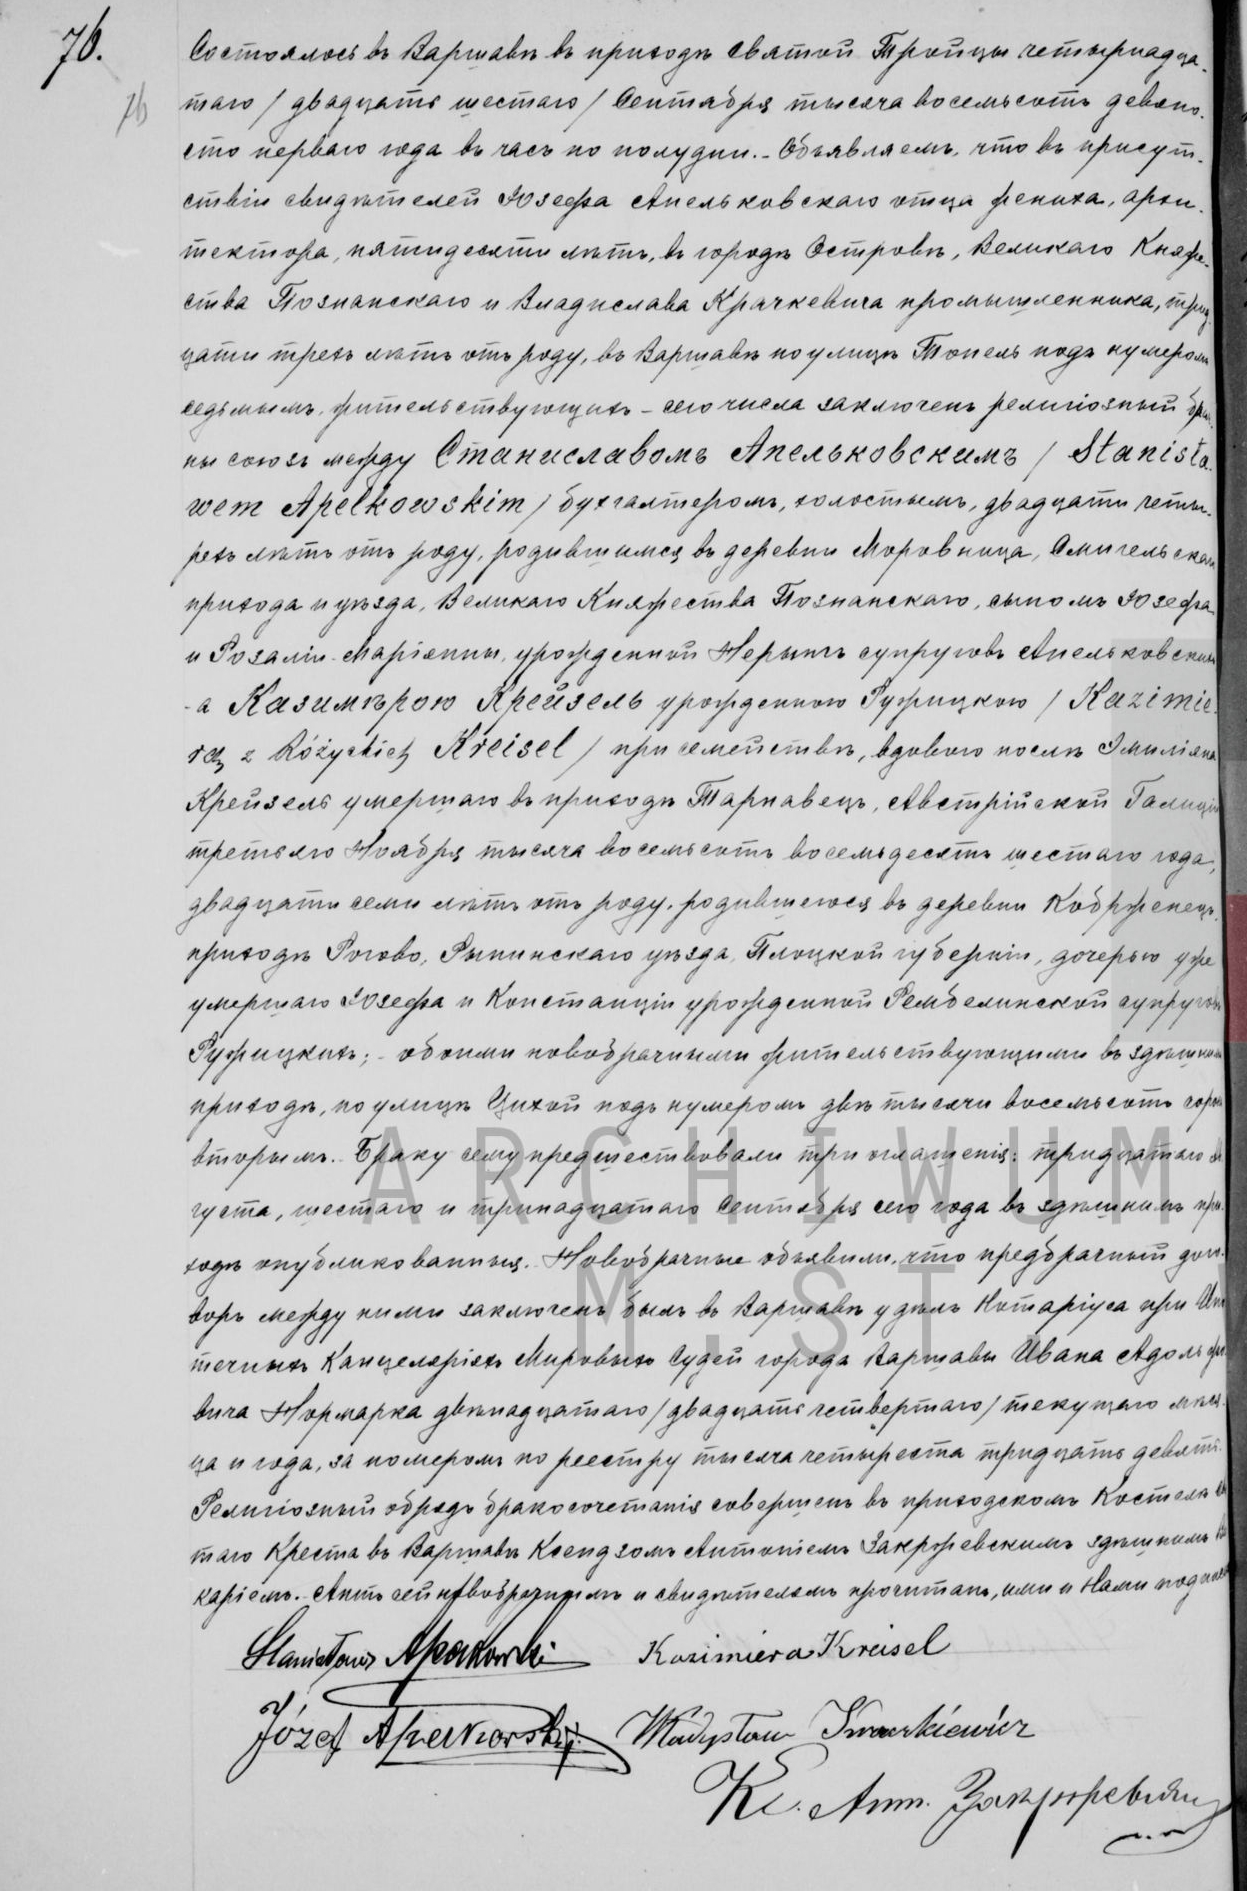 76.
76
Состоялось въ Варшавѣ въ приходѣ Святой Тройцы четырнадца-
таго / двадцать шестаго / Сентября тысяча восемьсотъ девяно-
сто перваго года въ часъ по полудни. - Объявляемъ, что въ присут-
ствіи свидѣтелей Юзефа Апельковскаго отца жениха, архи-
тектора, пятидесяти лѣтъ, въ городѣ Островѣ, Великаго Княже-
ства Познанскаго и Владислава Крачкевича промышленника, трид-
цати трехъ лѣтъ отъ роду, въ Варшавѣ по улицѣ Топель подъ нумеромъ
седьмымъ жительствующихъ - сего числа заключенъ религіозный
ны союзъ между Станиславомъ Апельковскимъ / Stanisła-
wem Apelkowskim / бухгалтеромъ, холостымъ, двадцати четы-
рехъ лѣтъ отъ роду, родившимся въ деревни Моровница, Смигельскаго
прихода и уѣзда, Великаго Княжества Познанскаго, сыномъ Юзефа
и Розаліи-Маріянны, урожденной Нерынгъ супруговъ Апельковскихъ
- а Казимѣрою Крейзель урожденною Ружицкою / Kazimie-
rą z Różyckich Kreisel / при семействѣ, вдовою послѣ Эмиліяна
Крейзель умершаго въ приходѣ Тарнавецъ, Австрійской Галиціи
третьяго Ноября тысяча восемьсотъ восемьдесятъ шестаго года,
двадцати семи лѣтъ отъ роду, родившеюся въ деревни Кобрженецъ,
приходѣ Рогово, Рыпинскаго уѣзда, Плоцкой губерніи, дочерью уже
умершаго Юзефа и Констанціи урожденной Рембелинской супруговъ
Ружицкихъ; - обоими новобрачными жительствующими въ здѣшнемъ
приходѣ, по улицѣ Цихой подъ нумеромъ двѣ тысячи восемьсотъ сорокъ
вторымъ. - Браку сему предшествовали три оглашенія: тридцатаго Ав-
густа, шестаго и тринадцатаго Сентября сего года въ здѣшнемъ при-
ходѣ опубликованныя. Новобрачные объявили, что предбрачный дого-
воръ между ними заключенъ былъ въ Варшавѣ у дѣлъ Нотаріуса при Ипо-
течныхъ Канцеляріяхъ Мировыхъ Судей города Варшавы Ивана Адольфо-
вича Нормарка двѣнадцатаго / двадцать четвертаго / текущаго мѣся-
ца и года, за номеромъ по реестру тысяча четыреста тридцать девять.
Религіозный обрядъ бракосочетанія совершенъ въ приходскомъ Костелѣ Свя-
таго Креста въ Варшавѣ Ксендзомъ Антоніемъ Закржевскимъ здѣшнимъ Ви-
каріемъ. - Актъ сей новобрачнымъ и свидѣтелямъ прочитанъ, ими и Нами подписанъ
Stanisław Apelkowski Kazimiera Kreisel
Józef Apelkowski Władysław Kraczkiewicz
Кс. Ант. Закржевскій
ARCHIWUM
M. ST